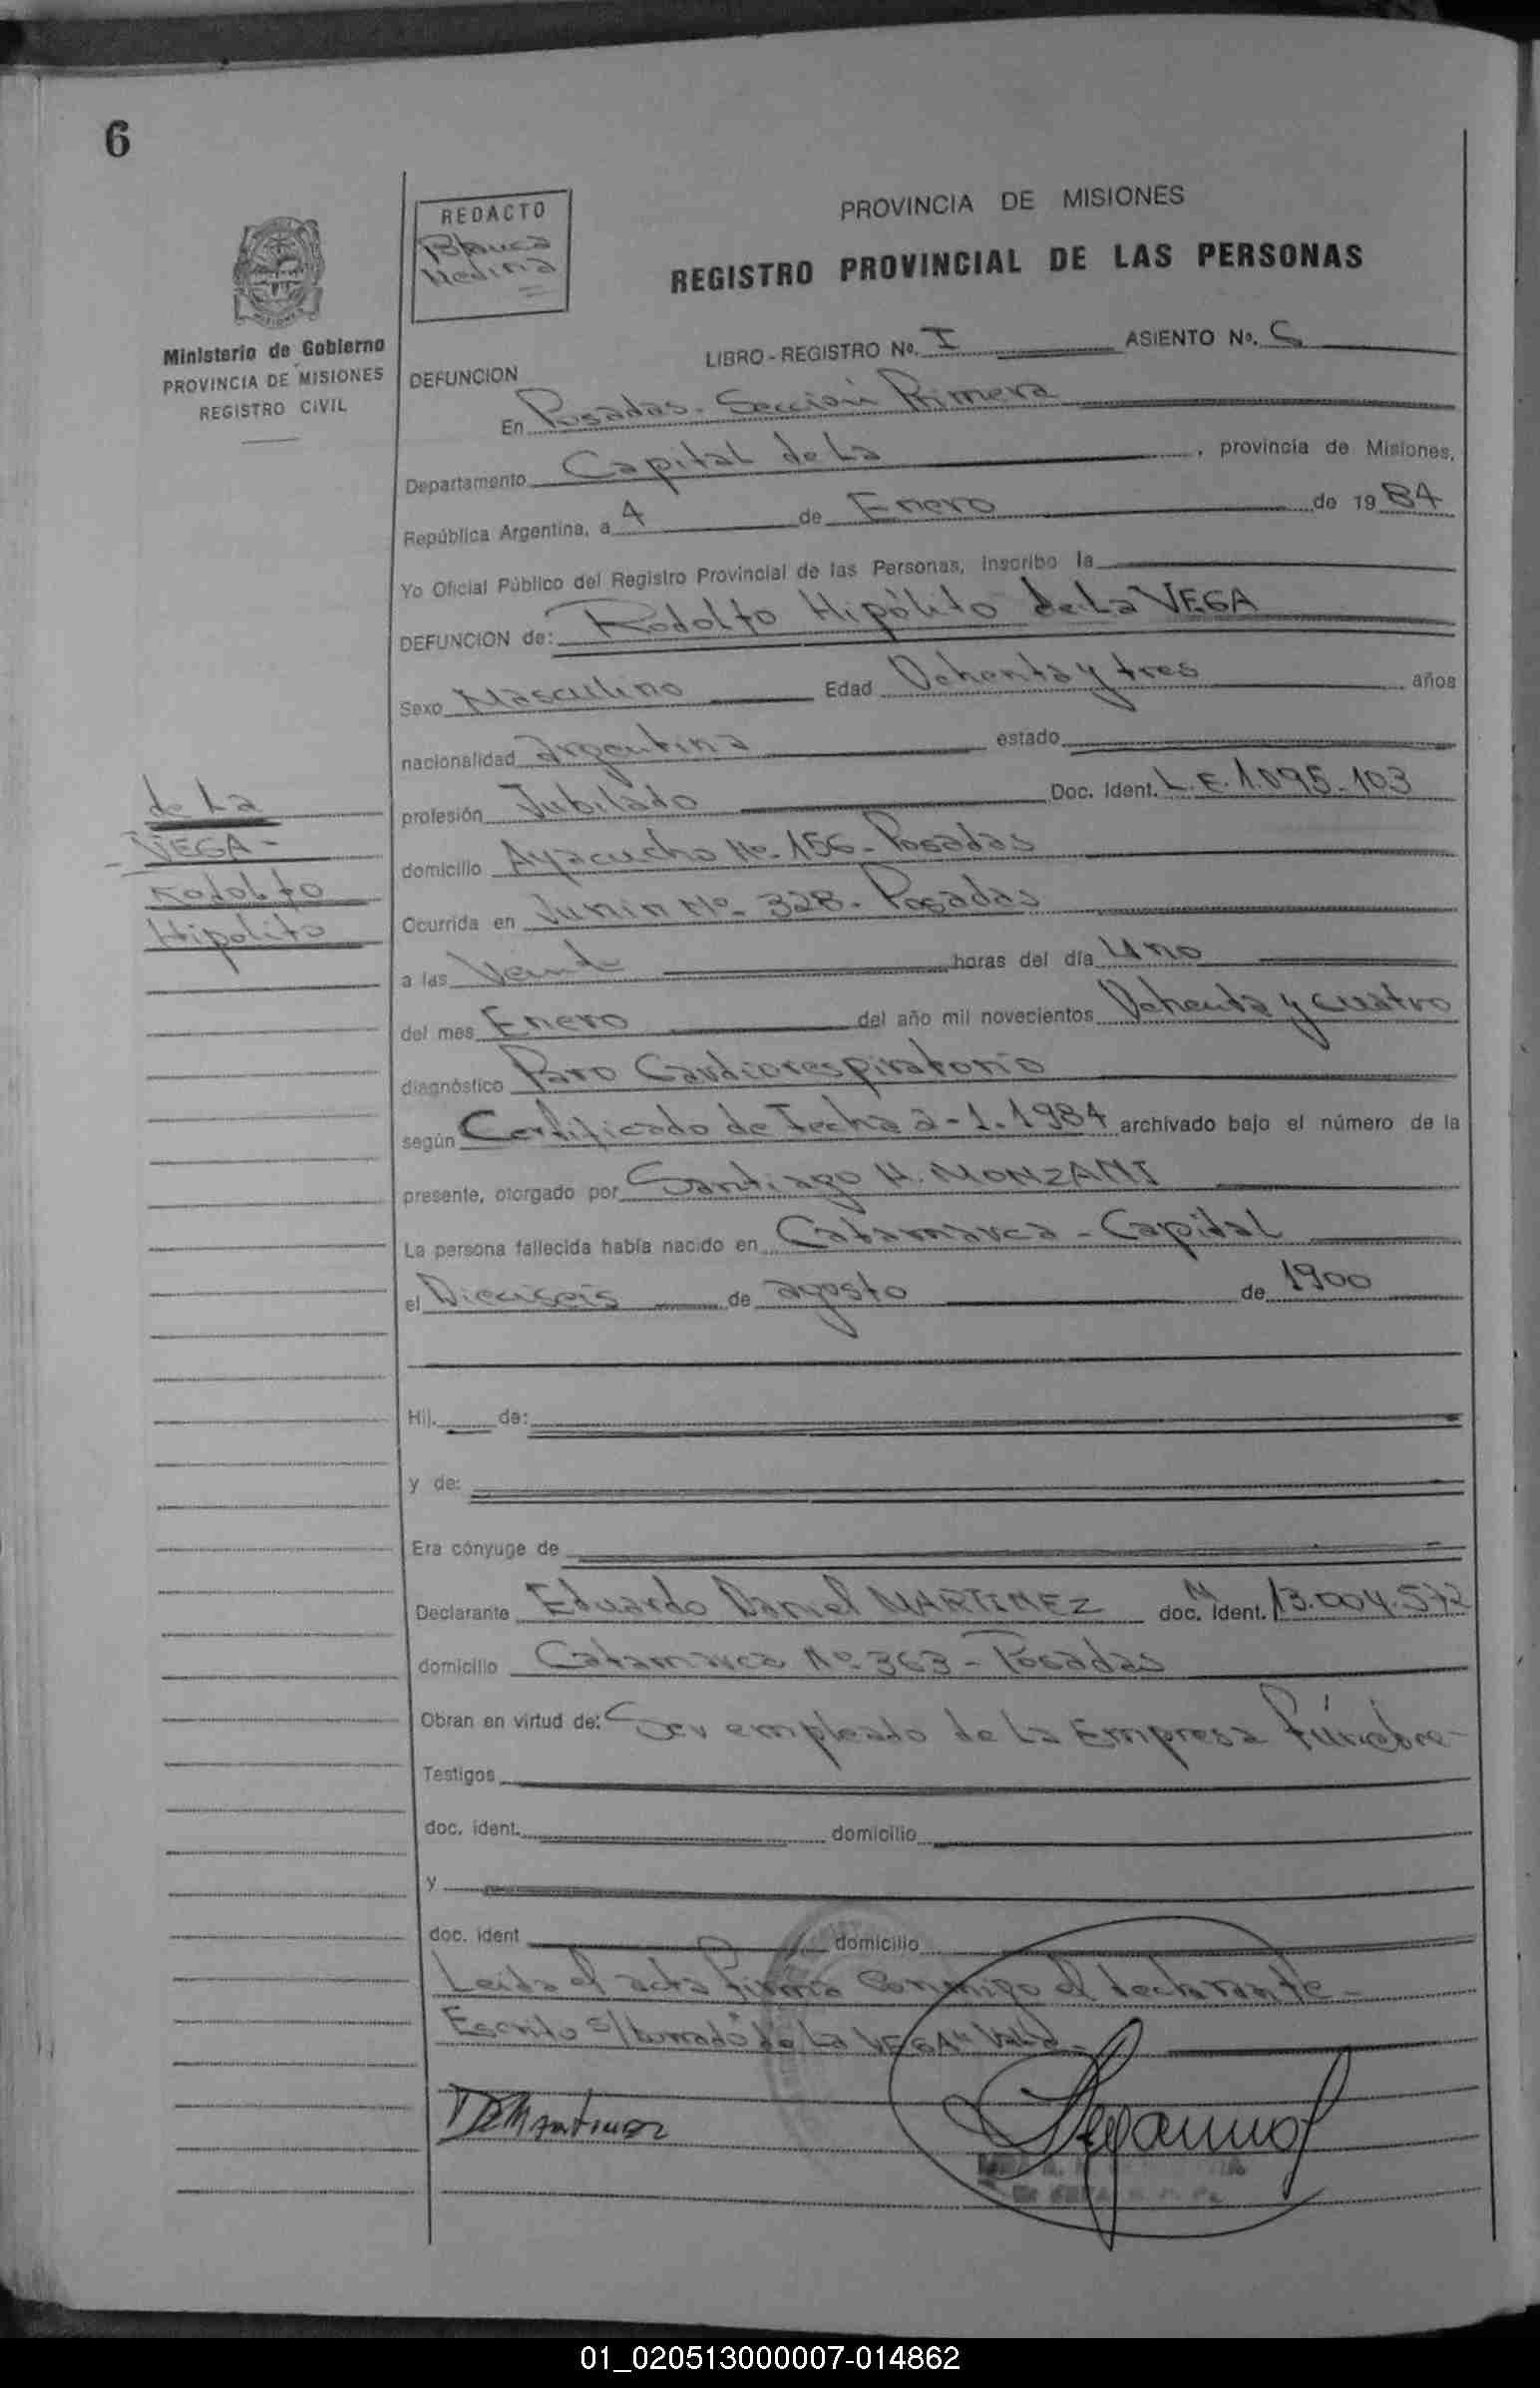 6
REDACTO
Blanca
Medina
PROVINCIA DE MISIONES
REGISTRO PROVINCIAL DE LAS PERSONAS
MISIONES
Ministerio de Gobierno
PROVINCIA DE MISIONES
REGISTRO CIVIL
LIBRO - REGISTRO No. I ASIENTO No.
DEFUNCION
En Posadas. Sección Primera
Departamento Capital de La , provincia de Misiones,
República Argentina, a 4 de Enero de 1984
Yo Oficial Público del Registro Provincial de las Personas, inscribo la
DEFUNCION de: Rodolfo Hipólito de La VEGA
Sexo Masculino Edad Ochenta y tres años
nacionalidad argentina estado
profesión Jubilado Doc. Ident. L.E. 1.095.103
domicilio Ayacucho No. 156. Posadas
Ocurrida en Junin No. 328. Posadas
a las Veinte horas del día Uno
del mes Enero del año mil novecientos Ochenta y cuatro
diagnóstico Paro Cardiorespiratorio
según Certificado de Fecha 2-1-1984 archivado bajo el número de la
presente, otorgado por Santiago H. MONZANI
La persona fallecida había nacido en Catamarca - Capital
el Dieciseis de agosto de 1900
de La
VEGA -
Rodolfo
Hipolito
Hij. de:
y de:
Era cónyuge de
Declarante Eduardo Daniel MARTINEZ doc. Ident. 13.004.572
domicilio Catamarca No 363 - Posadas
Obran en virtud de: Ser empleado de la Empresa Fúnebre -
Testigos
doc. ident. domicilio
y
doc. ident domicilio
Leida el acta firma conmigo el declarante -
Escrito s/borrado "de La VEGA" Vale -
DEMartinez
01_020513000007-014862